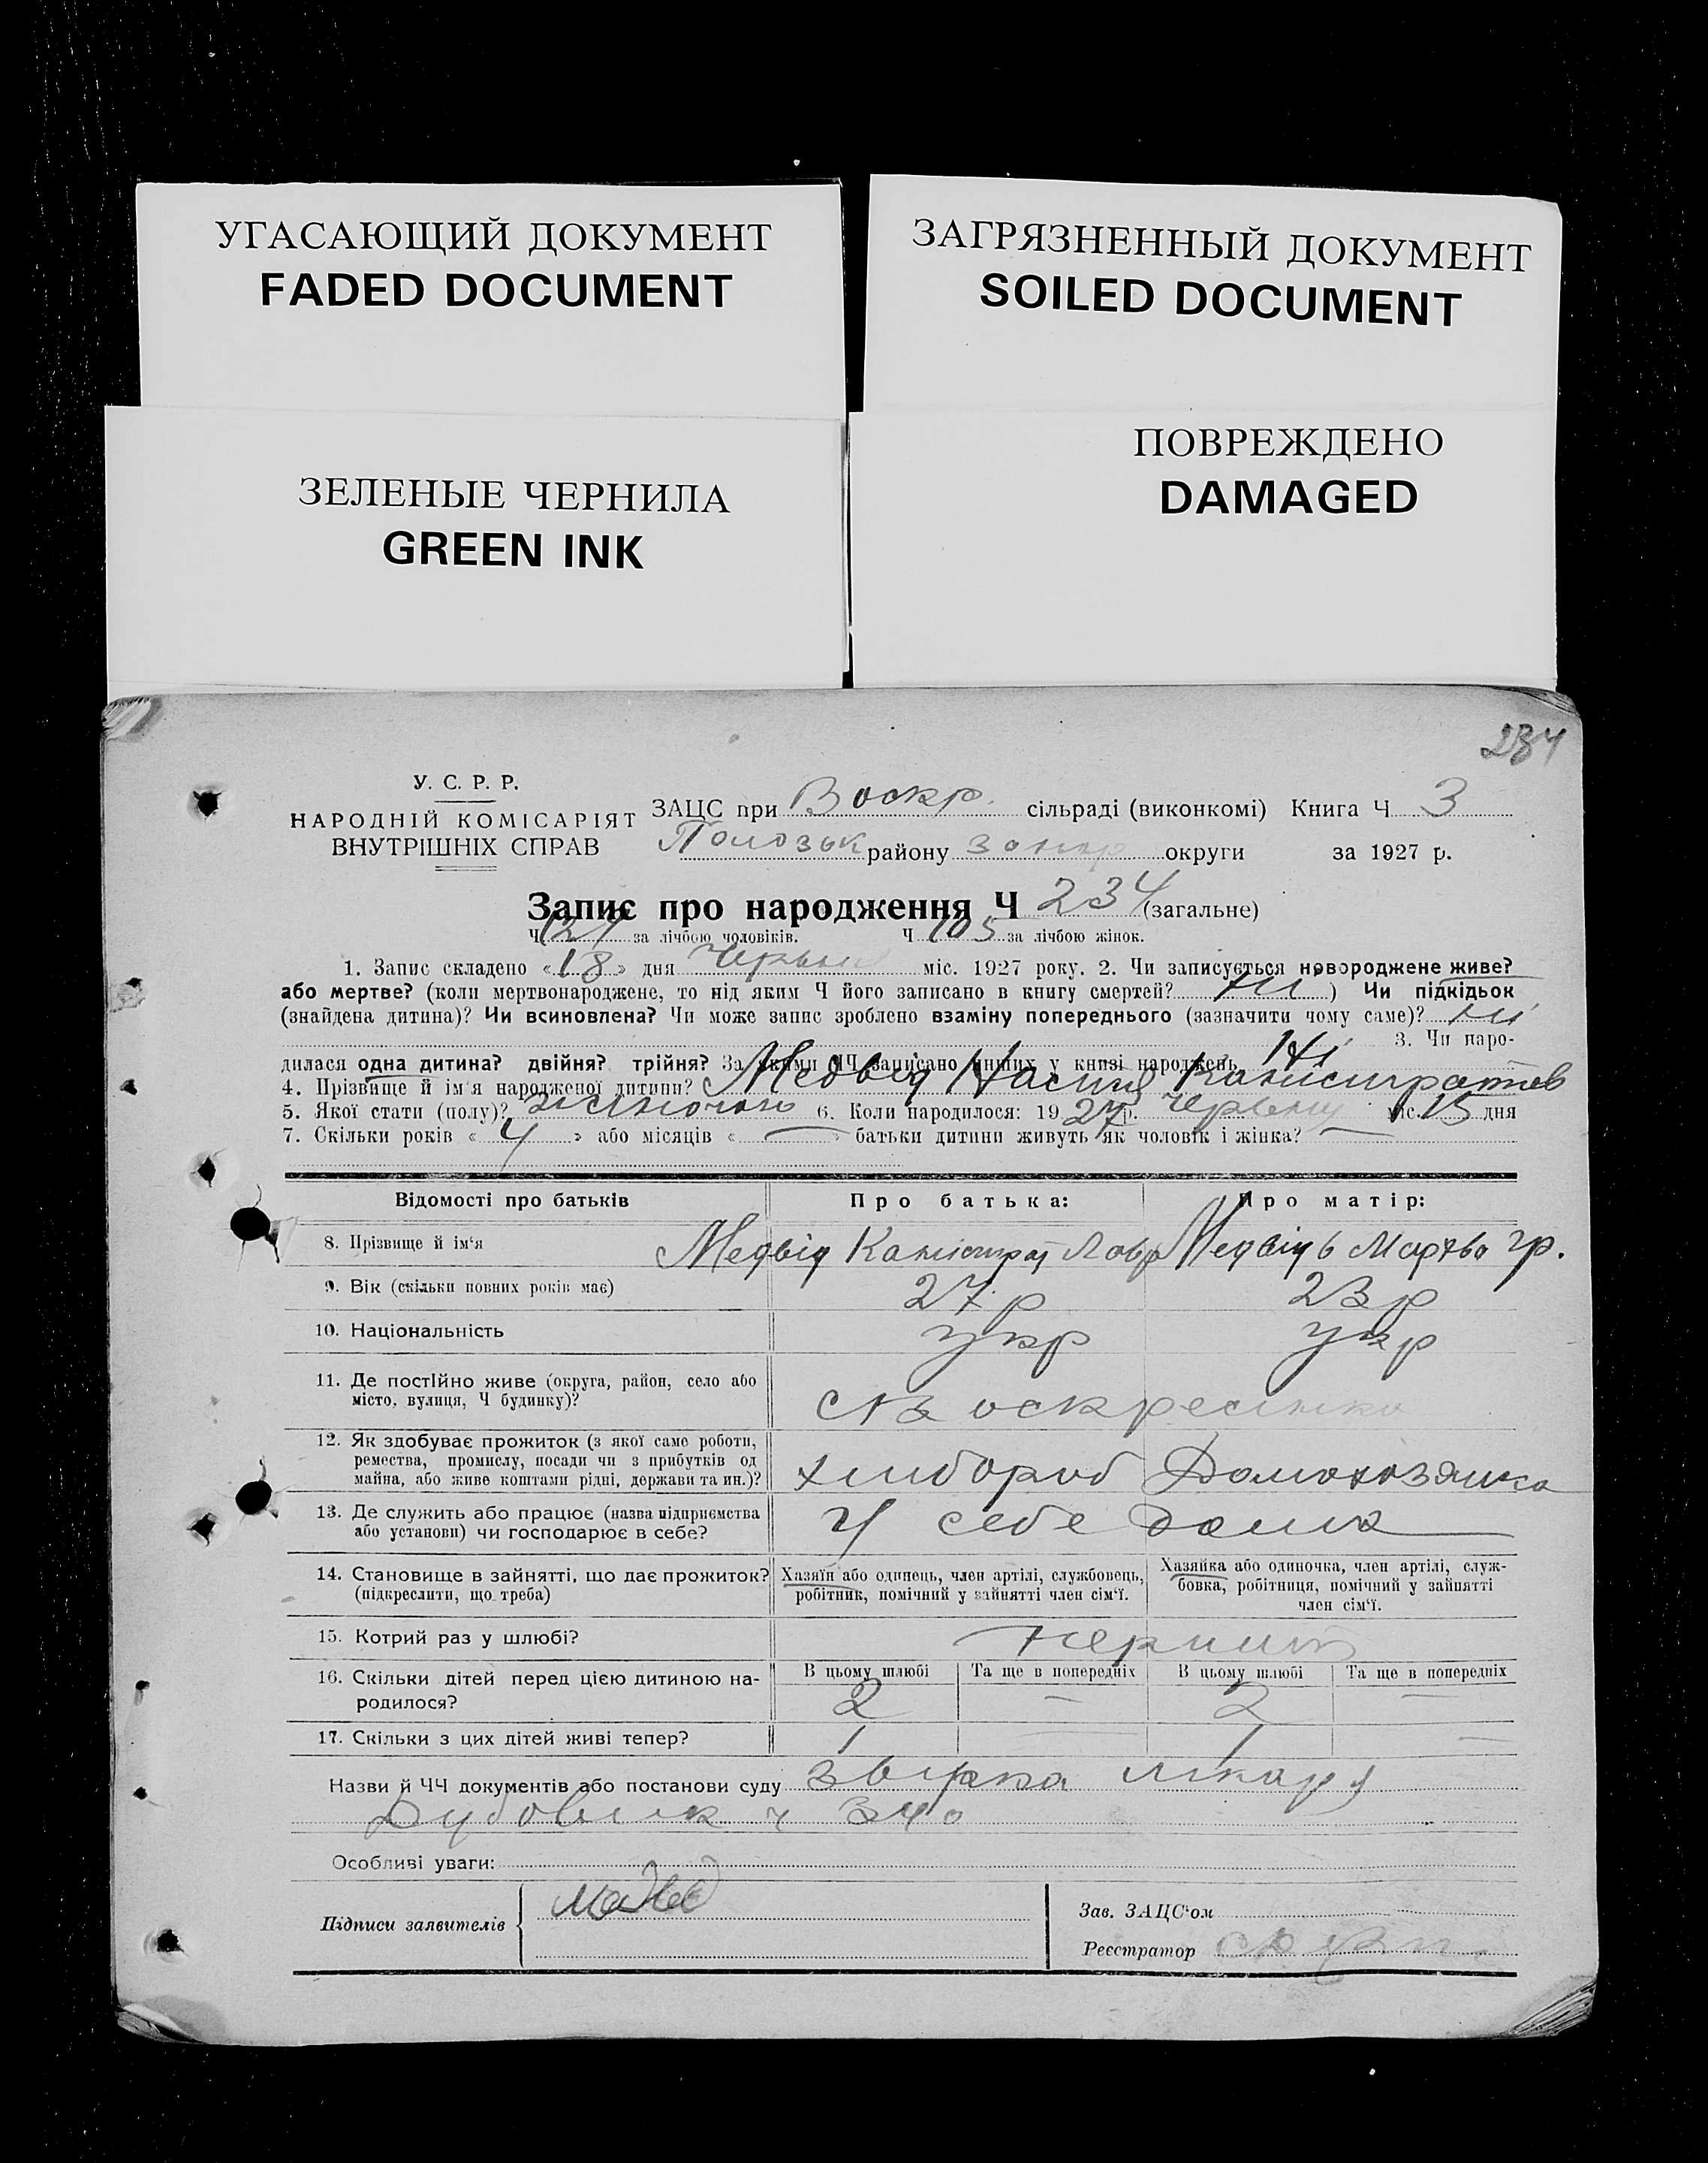 УГАСАЮЩИЙ ДОКУМЕНТ
FADED DOCUMENT
ЗАГРЯЗНЕННЫЙ ДОКУМЕНТ
SOILED DOCUMENT
ЗЕЛЕНЫЕ ЧЕРНИЛА
GREEN INK
ПОВРЕЖДЕНО
DAMAGED
234
У. С. Р. Р.
НАРОДНІЙ КОМІСАРІЯТ
ВНУТРІШНІХ СПРАВ
ЗАЦС при Воскр. сільраді (виконкомі) Книга Ч 3
району округи за 1927 р.
Запис про народження Ч 234 (загальне)
Ч 129 за лічбою чоловіків. Ч 105 за лічбою жінок.
1. Запис складено «18» дня Червня міс. 1927 року. 2. Чи записується новороджене живе?
або мертве? (коли мертвонароджене, то під яким Ч його записано в книгу смертей? ні) Чи підкідьок
(знайдена дитина)? Чи всиновлена? Чи може запис зроблено взаміну попереднього (зазначити чому саме)? ні
3. Чи наро-
дилася одна дитина? двійня? трійня? За якими ЧЧ записано инших у книзі народжень ні
4. Прізвище й ім'я народженої дитини? Медвід
5. Якої стати (полу)? жіночого 6. Коли народилося: 1927 р. Червня міс. 15 дня
7. Скільки років «4» або місяців «—» батьки дитини живуть як чоловік і жінка? —
Відомості про батьків Про батька: Про матір:
8. Прізвище й ім'я Медвід Каністрат Лавр Медвідь Марфа Гр.
9. Вік (скільки повних років має) 27 р 23 р
10. Національність укр укр
11. Де постійно живе (округа, район, село або
місто, вулиця, Ч будинку)?
с Воскресенка
12. Як здобуває прожиток (з якої саме роботи,
ремества, промислу, посади чи з прибутків од
майна, або живе коштами рідні, держави та ин.)?
хлибороб Домохозяйка
13. Де служить або працює (назва підприємства
або установи) чи господарює в себе?
У себе дома
14. Становище в зайнятті, що дає прожиток?
(підкреслити, що треба)
Хазяїн або одинець, член артілі, службовець,
робітник, помічний у зайнятті член сім'ї.
Хазяйка або одиночка, член артілі, служ-
бовка, робітниця, помічний у зайнятті
член сім'ї.
15. Котрий раз у шлюбі?
16. Скільки дітей перед цією дитиною на-
родилося?
В цьому шлюбі Та ще в попередніх В цьому шлюбі Та ще в попередніх
2 — 2 —
17. Скільки з цих дітей живі тепер? 1 1 —
Назви й ЧЧ документів або постанови суду
Особливі уваги:
Підписи заявителів
Зав. ЗАЦС'ом
Реєстратор